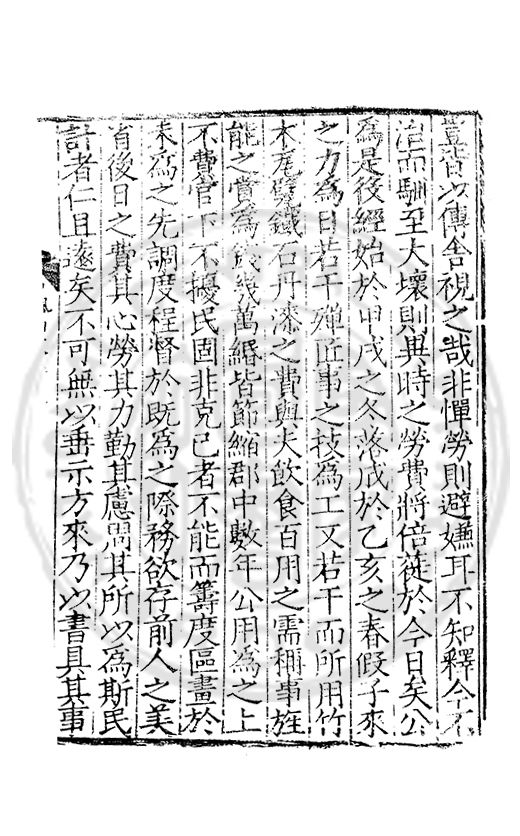 豈皆以傳舍視之哉非憚勞則避嫌耳不知釋今不
治而馴至大壞則異時之勞費將倍徙於今日矣公
為是後經始於甲戌之冬落成於乙亥之春假子來
之力為日若干殫匠事之技為工又若干而所用竹
木瓦甓鐵石丹漆之費與夫飲食百用之需稱事旌
能之賞為錢幾萬緡皆節縮郡中數年公用為之上
不費官下不擾民固非克己者不能而籌度區畫於
未為之先調度程督於既為之際務欲存前人之美
省後日之費其心勞其力勤其慮周其所以為斯民
計者仁且遠矣不可無以垂示方來乃以書具其事